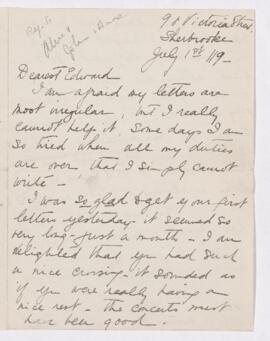 Rep. to
Olive
John & Anne
90 Victoria Street
Sherbrooke
July 1st 119-
Dearest Edward
I am afraid my letters are
most irregular, but I really
cannot help it. Some days I am
so tired when all my duties
are over, that I simply cannot
write -
I was so glad to get your first
letters yesterday - it seemed so
very long - just a month - I am
delighted that you had such
a nice crossing - it sounded as
if you were really having a
nice rest - the concerts must
have been good -